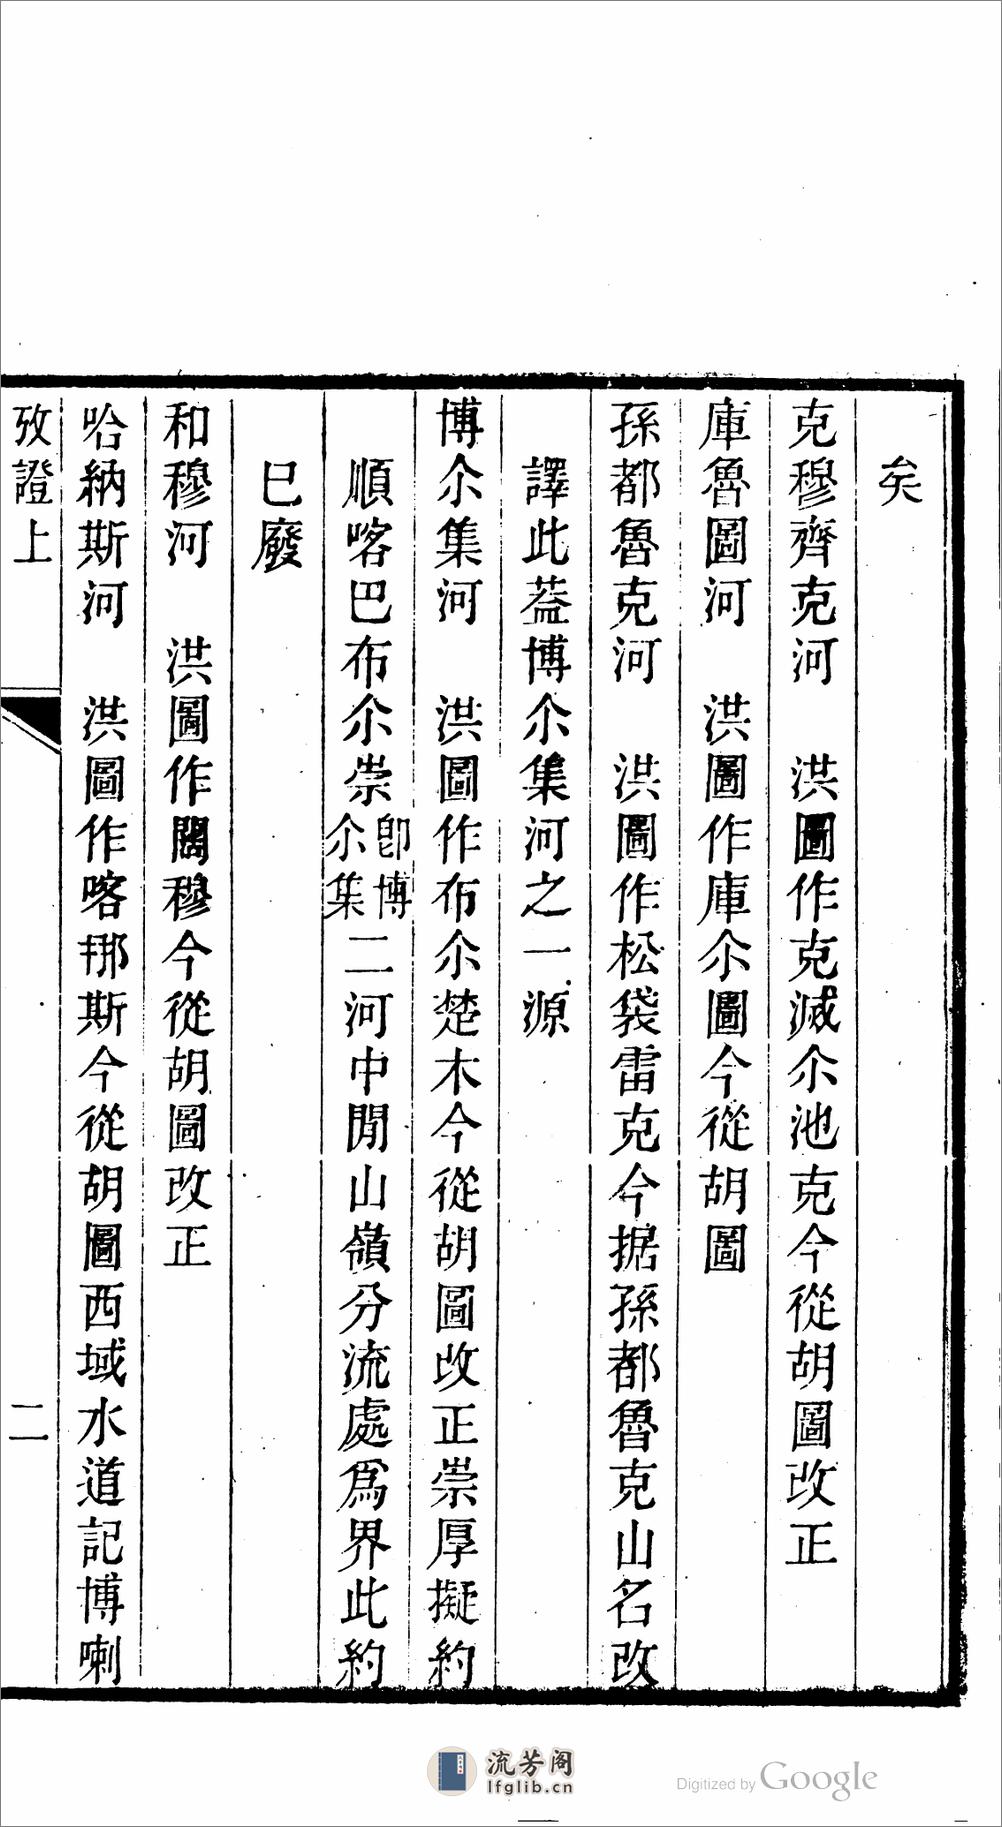 矣
克穆齊克河　洪圖作克減尒池克今從胡圖改正
庫魯圖河　洪圖作庫尒圖今從胡圖
孫都魯克河　洪圖作松袋雷克今据孫都魯克山名改
譯此葢博尒集河之一源
博尒集河　洪圖作布尒楚木今從胡圖改正崇厚擬約
順喀巴布尒崇卽博尒集二河中閒山嶺分流處爲界此約
已廢
和穆河　洪圖作闊穆今從胡圖改正
哈納斯河　洪圖作喀挪斯今從胡圖西域水道記博喇
攷證上　二
流芳阁
lfglib.cn
Digitized by Google